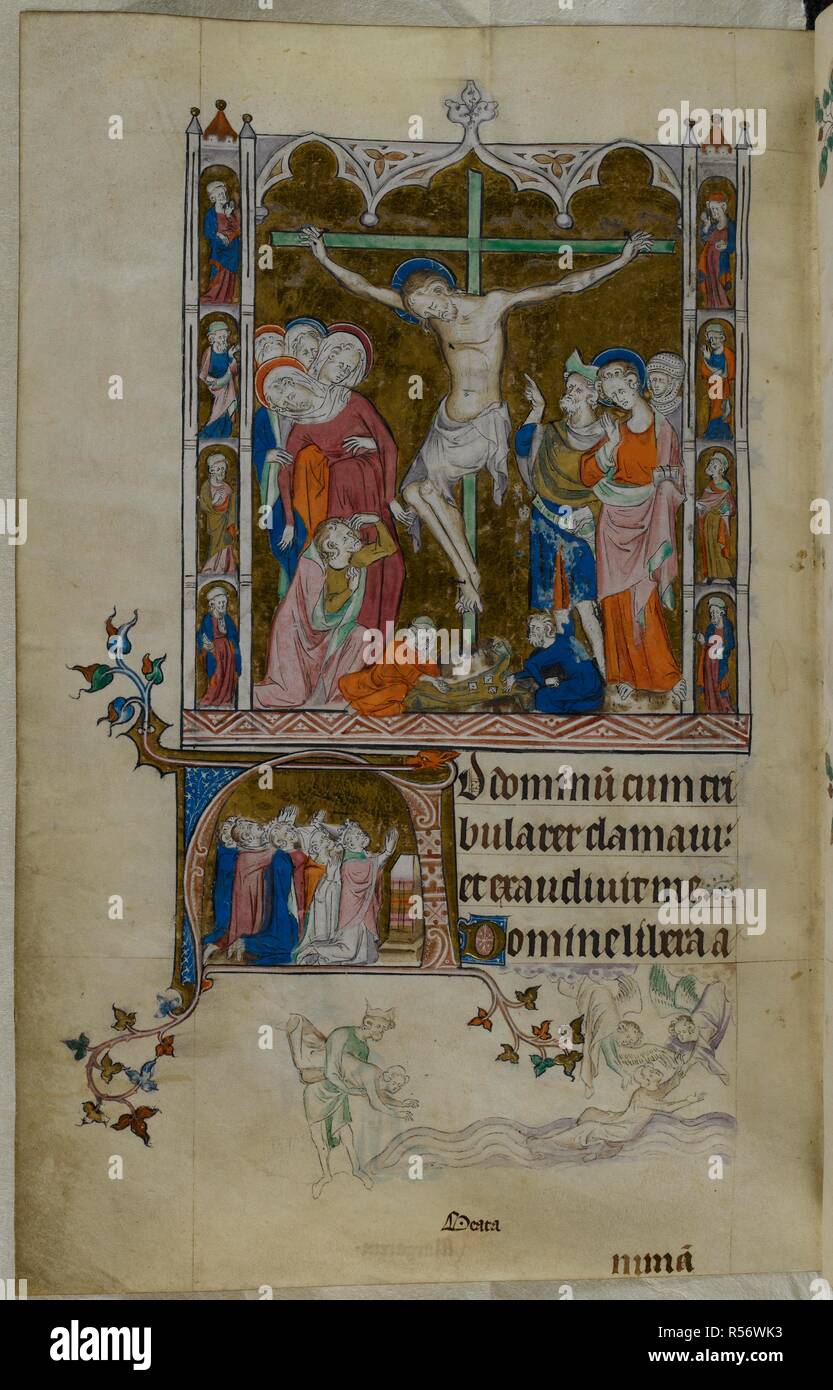 AD dominũ cum tri
bularer clamaui:
et exaudiuit me
Domine libera a
Beata
nimã
alamy
Image ID: R56WK3
www.alamy.com